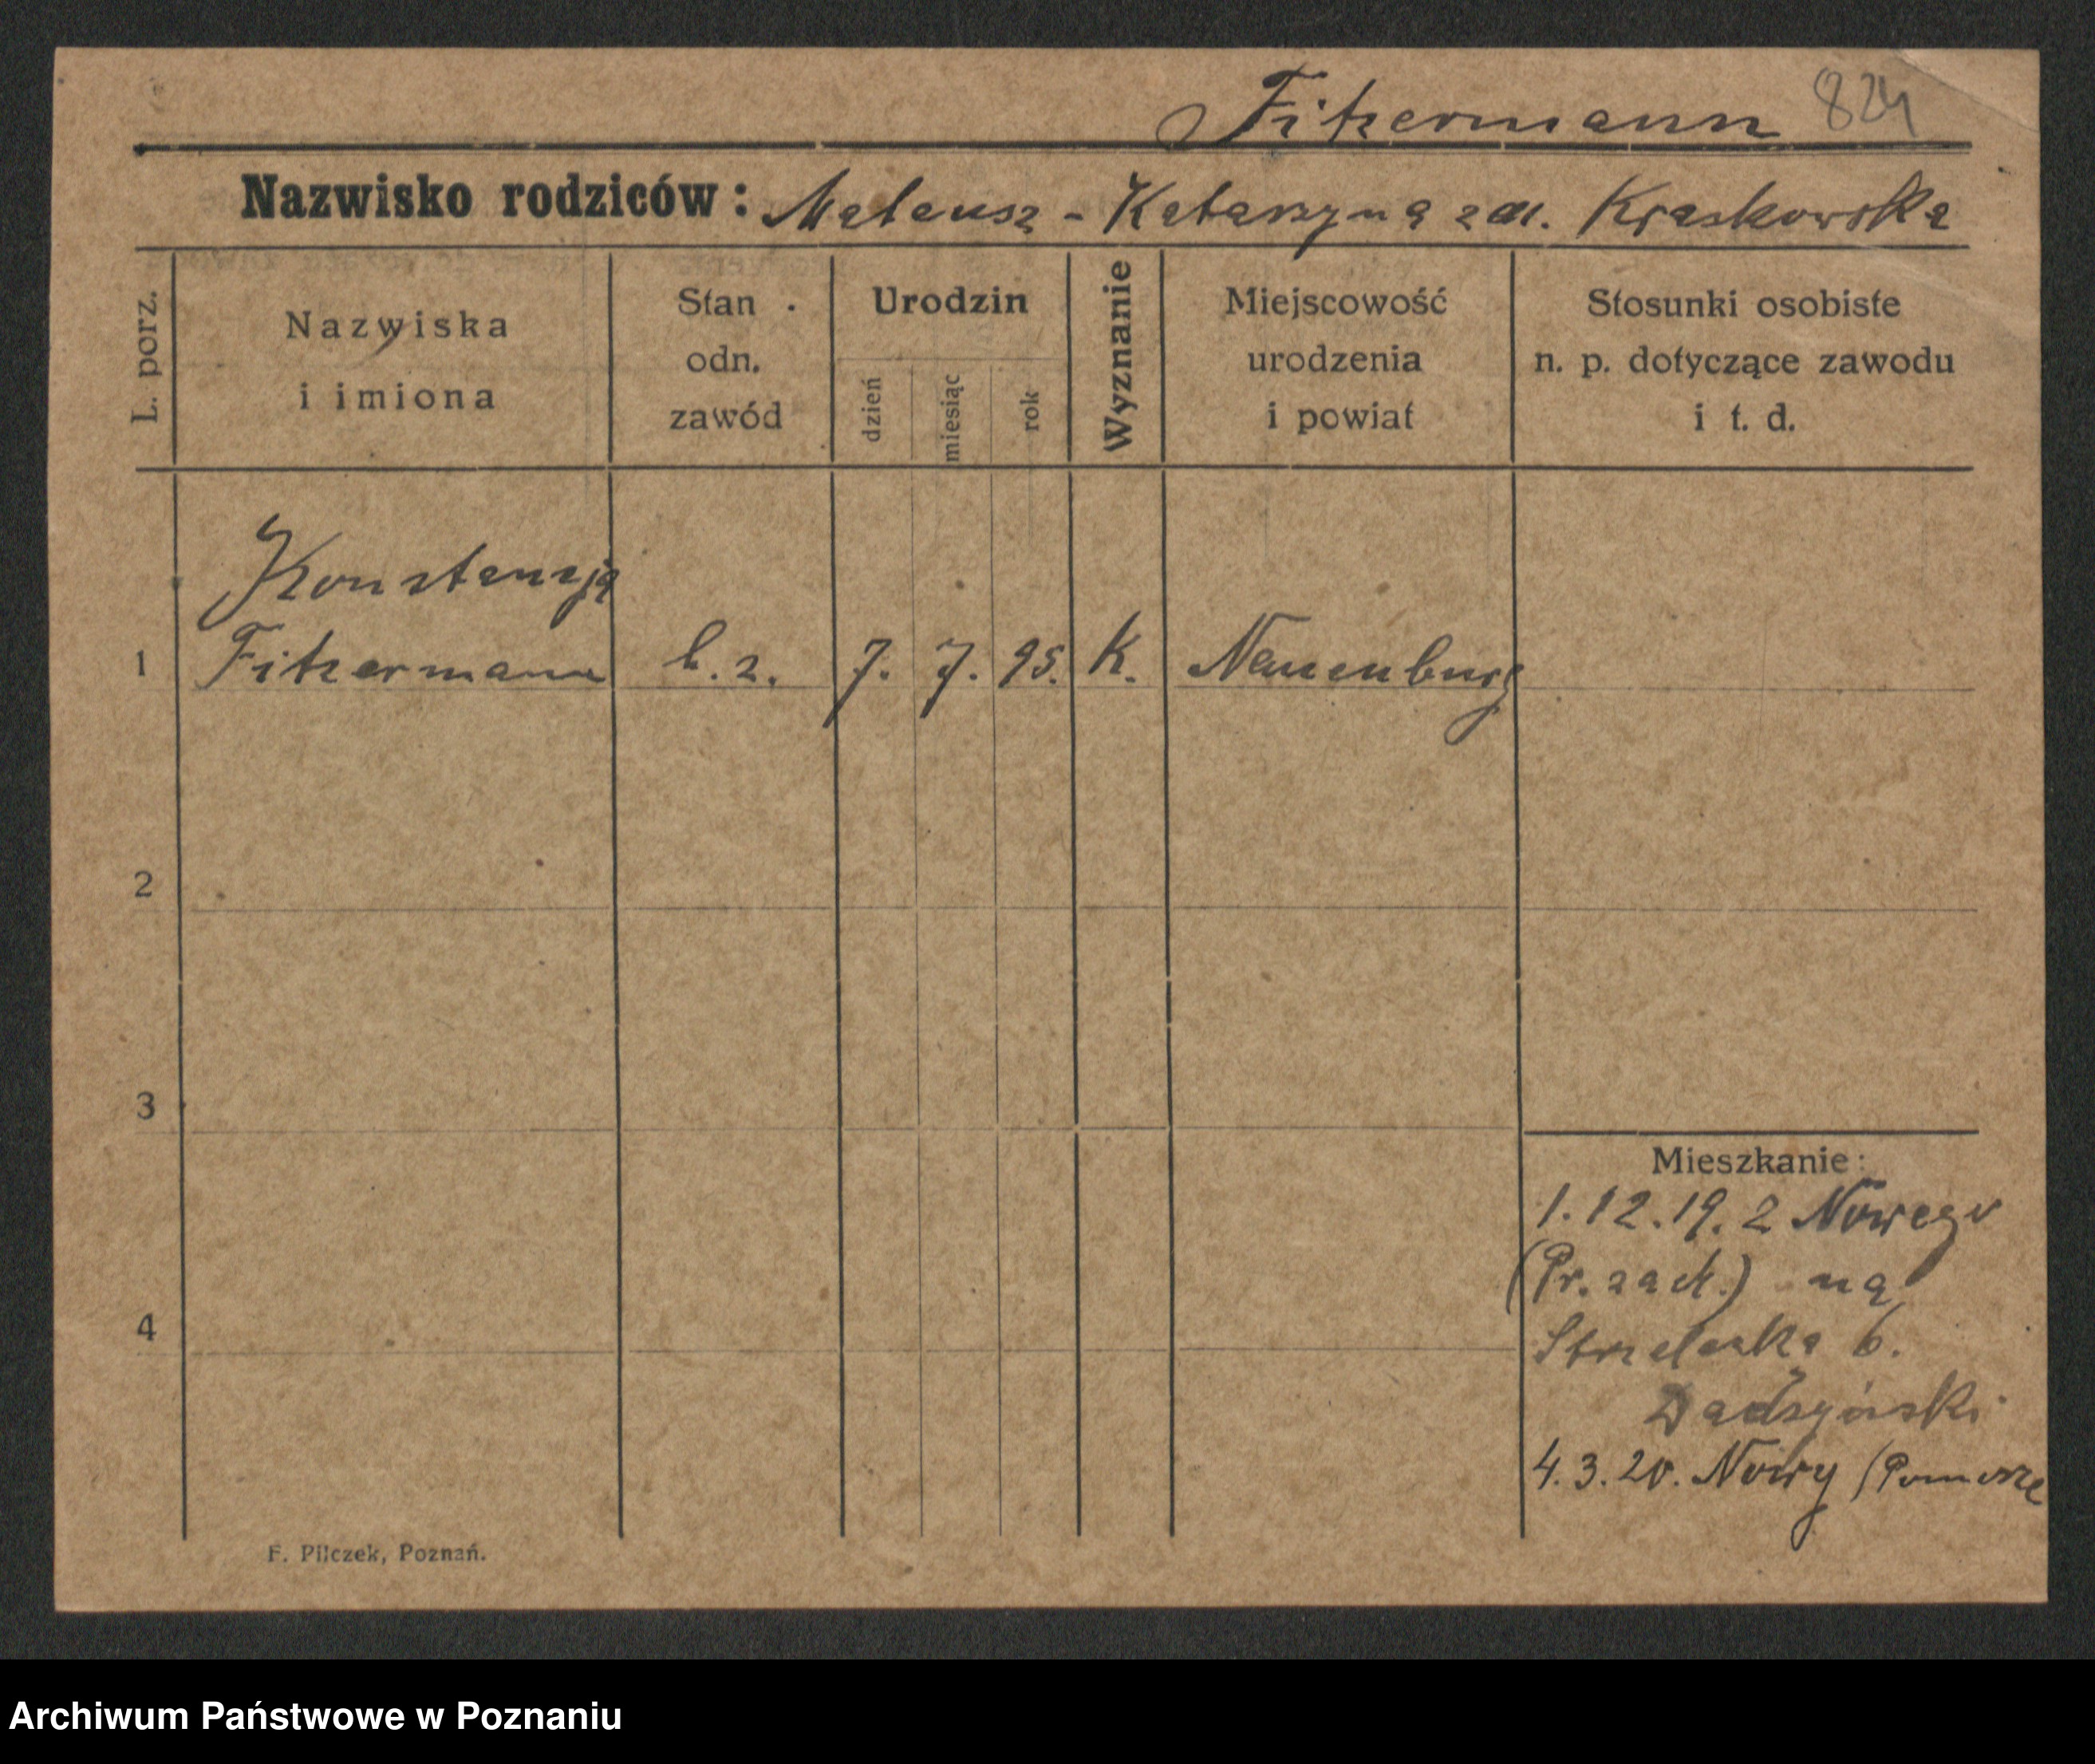 Fitzermann 824
Nazwisko rodziców: Mateusz - Katarzyna zd. Kraskowska
L. porz.
Nazwiska
i imiona
Stan
odn.
zawód
Urodzin
dzień
miesiąc
rok
Wyznanie
Miejscowość
urodzenia
i powiat
Stosunki osobiste
n. p. dotyczące zawodu
i t. d.
Konstanzja
1 Fitzermann b. z. 7. 7. 95. K. Neuenburg
2
3
4
Mieszkanie:
1.12.19. z Nowego
(Pr. zach.) na
Strzelecka 6.
4.3.20. Nowy (Pomorze
F. Pilczek, Poznań.
Archiwum Państwowe w Poznaniu